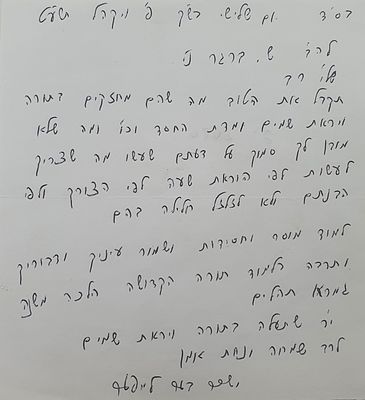 בס״ד יום שלישי בשק פ׳ ויקהל תשע״ט
להב׳ ש. ברגר ני׳
שלו׳ רב
תקבל את הטוב מה שהם מחזקים בתורה
ויראת שמים ומדת החסד וכו׳ ומה שלא
מובן לך סמוך על דעתם שעשו מה שצריך
לעשות לפי הוראת שעה לפי הצורך ולפי
הבנתם ולא לזלזל חלילה בהם
למוד מוסר וחסידות ושמור עיניך ודבוריך
ותרבה בלמוד תורה הקדושה הלכה משנה
גמרא תהלים
יר׳ שתעלה בתורה ויראת שמים
לרב שמחה ונחת אמן